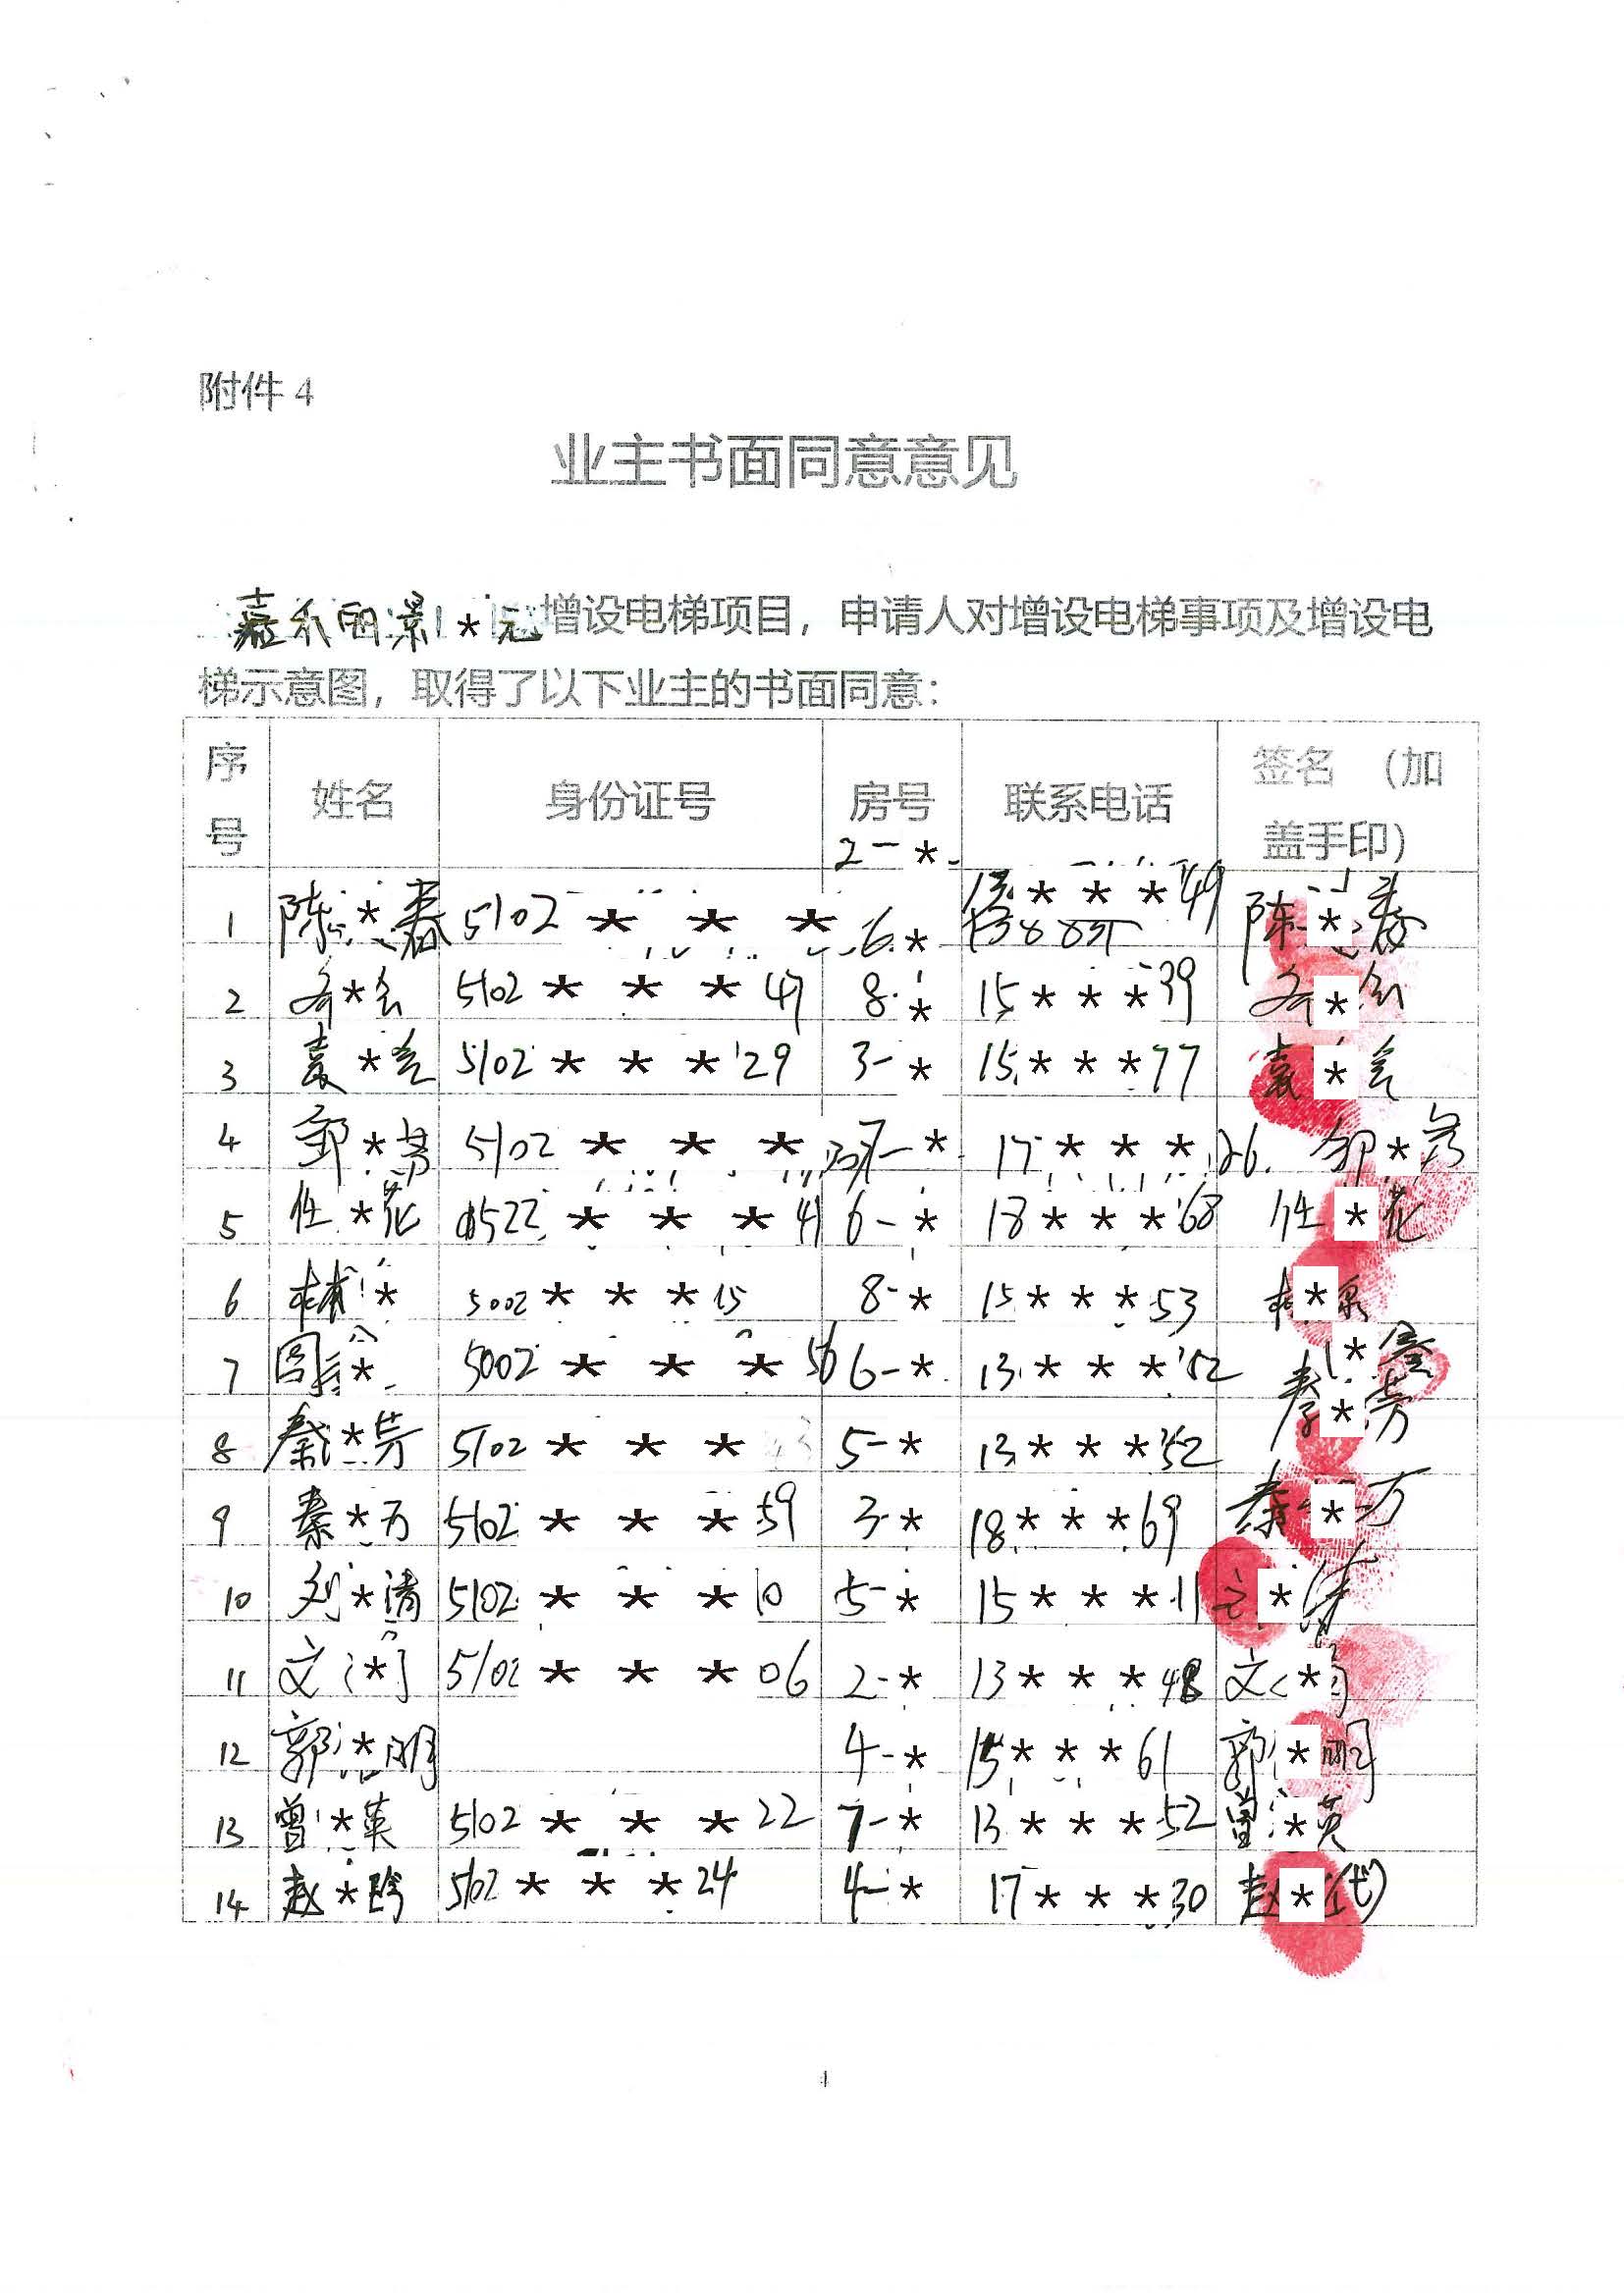 附件 4
业主书面同意意见
嘉禾丽景 * 元增设电梯项目，申请人对增设电梯事项及增设电
梯示意图，取得了以下业主的书面同意：
序号 姓名 身份证号 房号 联系电话 签名 （加盖手印）
2-*
1 陈*春 5102 * * * 6.* 13 * * * 49 陈*春
2 * 5102 * * * 47 8-* 15 * * * 39 *
3 袁*会 5102 * * * 29 3-* 15 * * * 77 袁*会
4 邹*芳 5102 * * * 7-* 17 * * * 26. 邹*芳
5 任*花 522 * * * 41 6-* 18 * * * 68 任*花
6 林* 5002 * * * 15 8-* 15 * * * 53 林*泉
7 周* 5002 * * * 56 6-* 13 * * * 52 *
8 秦*芳 5102 * * * 5-* 13 * * * 52 秦*芳
9 秦*万 5102 * * * 59 3-* 18 * * * 69 秦*万
10 刘*清 5102 * * * 10 5-* 15 * * * 11 *清
11 文* 5102 * * * 06 2-* 13 * * * 48 文*
12 郭*明 4-* 15 * * * 61 郭*明
13 曾*英 5102 * * * 22 7-* 13 * * * 52 曾*英
14 赵* 5102 * * * 24 4-* 17 * * * 30 赵*(代)
1